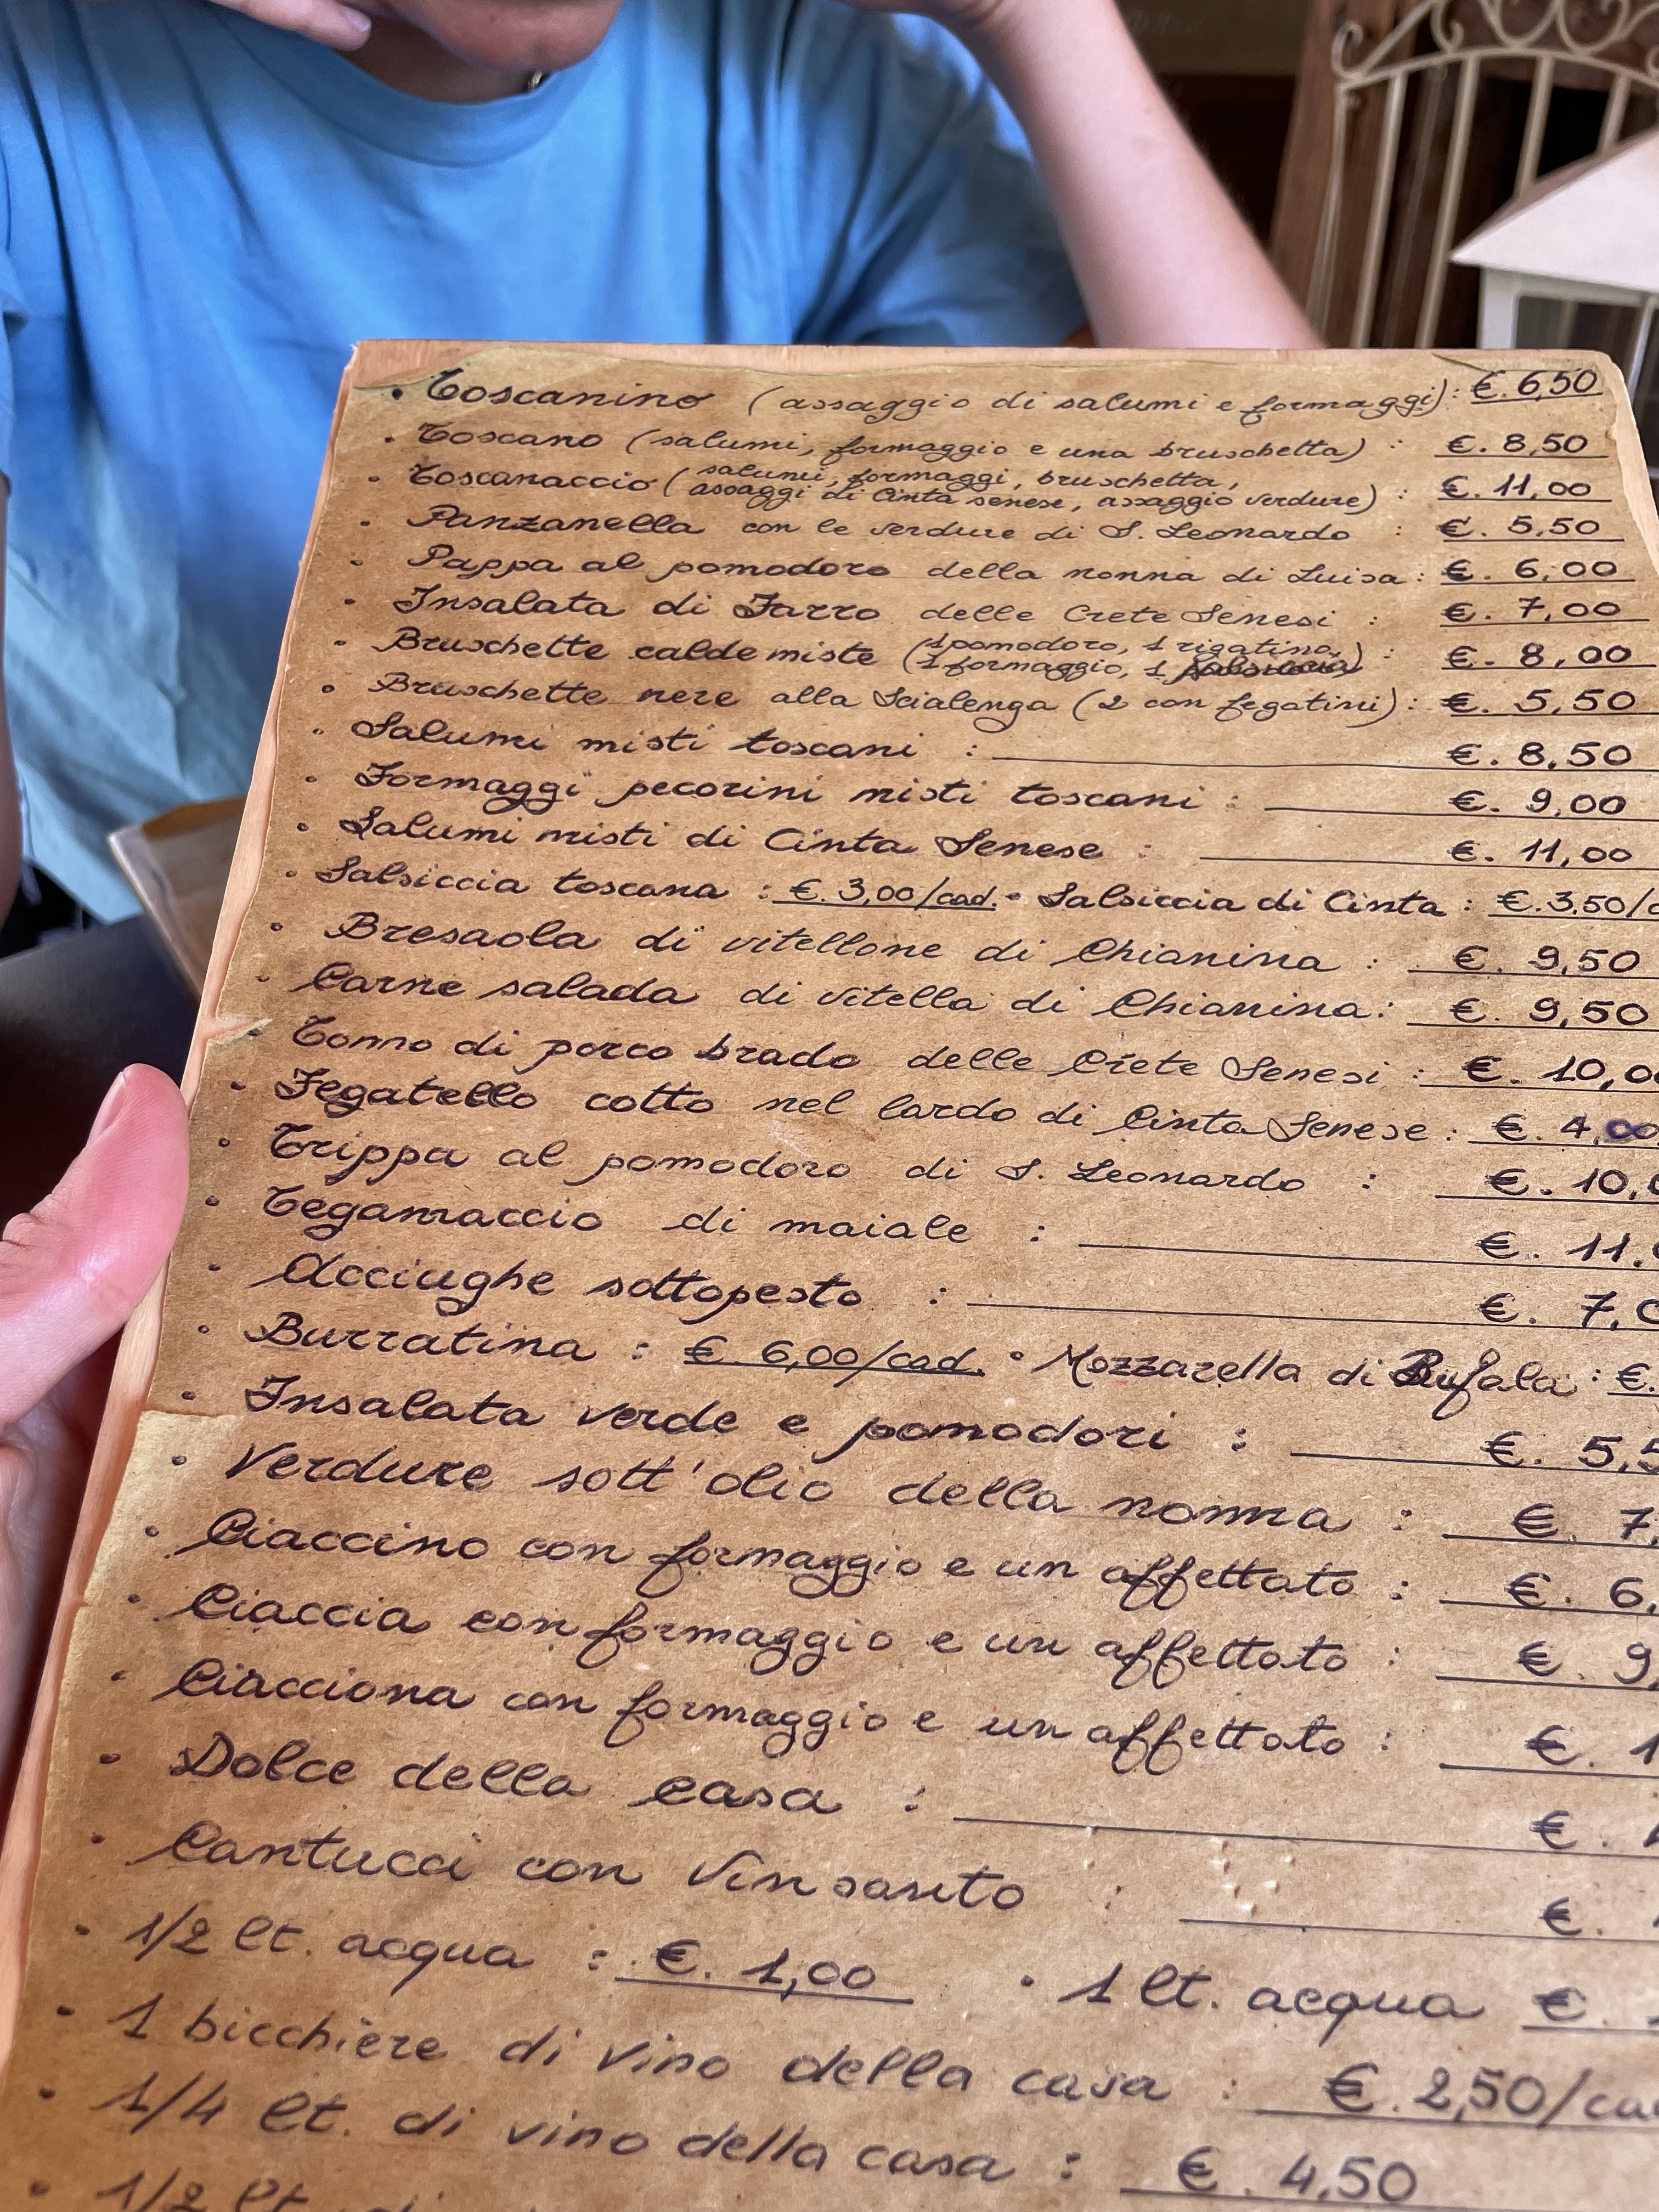 • Toscanino (assaggio di salumi e formaggi): €. 6,50
• Toscano (salumi, formaggio e una bruschetta) : €. 8,50
• Toscanaccio (salumi, formaggi, bruschetta,
assaggi di Cinta senese, assaggio verdure) : €. 11,00
• Panzanella con le verdure di S. Leonardo : €. 5,50
• Pappa al pomodoro della nonna di Luisa : €. 6,00
• Insalata di Farro delle Crete Senesi : €. 7,00
• Bruschette calde miste (1 pomodoro, 1 rigatino,
1 formaggio, 1 salsiccia) : €. 8,00
• Bruschette nere alla Scialenga (2 con fegatini) : €. 5,50
• Salumi misti toscani : €. 8,50
• Formaggi pecorini misti toscani : €. 9,00
• Salumi misti di Cinta Senese : €. 11,00
• Salsiccia toscana : €. 3,00/cad. • Salsiccia di Cinta : €. 3,50/c
• Bresaola di vitellone di Chianina : €. 9,50
• Carne salada di vitella di Chianina : €. 9,50
• Tonno di porco brado delle Crete Senesi : €. 10,00
• Fegatello cotto nel lardo di Cinta Senese : €. 4,00
• Trippa al pomodoro di S. Leonardo : €. 10,
• Tegamaccio di maiale : €. 11,
• Acciughe sottopesto : €. 7,
• Burratina : €. 6,00/cad. • Mozzarella di Bufala : €.
• Insalata verde e pomodori : €. 5,5
• Verdure sott'olio della nonna : €. 7,
• Ciaccino con formaggio e un affettato : €. 6,
• Ciaccia con formaggio e un affettato : €. 9,
• Ciacciona con formaggio e un affettato : €. 1
• Dolce della casa : €.
• Cantucci con Vin santo : €.
• 1/2 lt. acqua : €. 1,00 • 1 lt. acqua €.
• 1 bicchiere di vino della casa : €. 2,50/ca
• 1/4 lt. di vino della casa : €. 4,50
• 1/2 lt. di